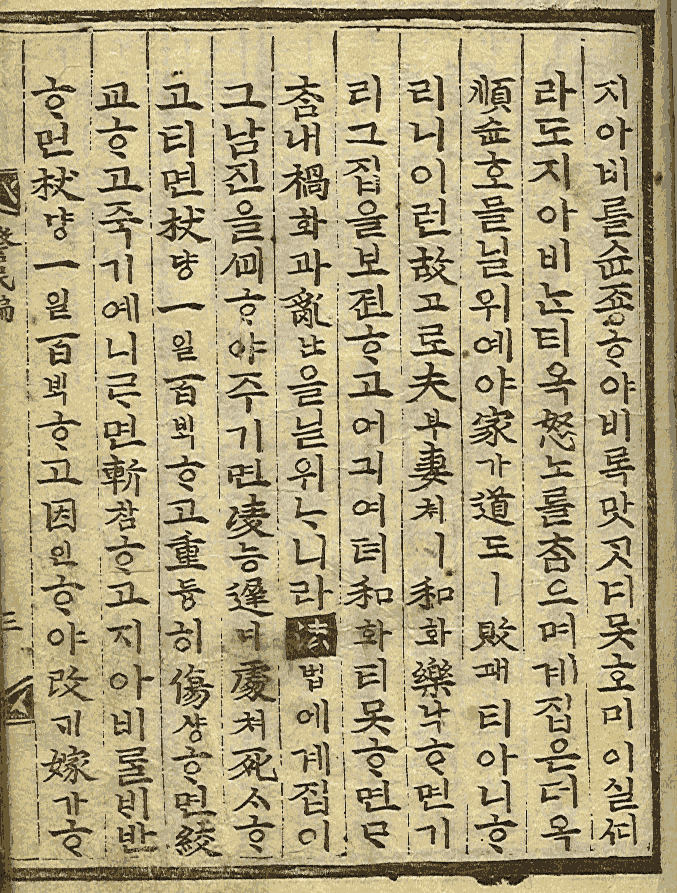 지아비를슌죵ᄒᆞ야비록맛ᄀᆞᆺ디못호미이실ᄯᅵ
라도지아비ᄂᆞᆫ티옥怒노를ᄎᆞᆷ으며계집은더옥
順슌호믈닐위예야家가道도ㅣ敗패티아니ᄒᆞ
리니이런故고로夫부妻쳐ㅣ和화樂낙ᄒᆞ면기
리그집을보젼ᄒᆞ고어긔여뎌和화티못ᄒᆞ면ᄆᆞ
ᄎᆞᆷ내禍화과亂난을닐위ᄂᆞ니라法법에계집이
그남진을ᄒᆞ야주기면凌능遲디處쳐死ᄉᆞᄒᆞ
고티면杖댱一일百ᄇᆡᆨᄒᆞ고重듕히傷샹ᄒᆞ면絞
교ᄒᆞ고죽기예니근면斬참ᄒᆞ고지아비를비반
ᄒᆞ면杖댱一일百ᄇᆡᆨᄒᆞ고因인ᄒᆞ야改ᄀᆡ嫁가ᄒᆞ
警民編
三